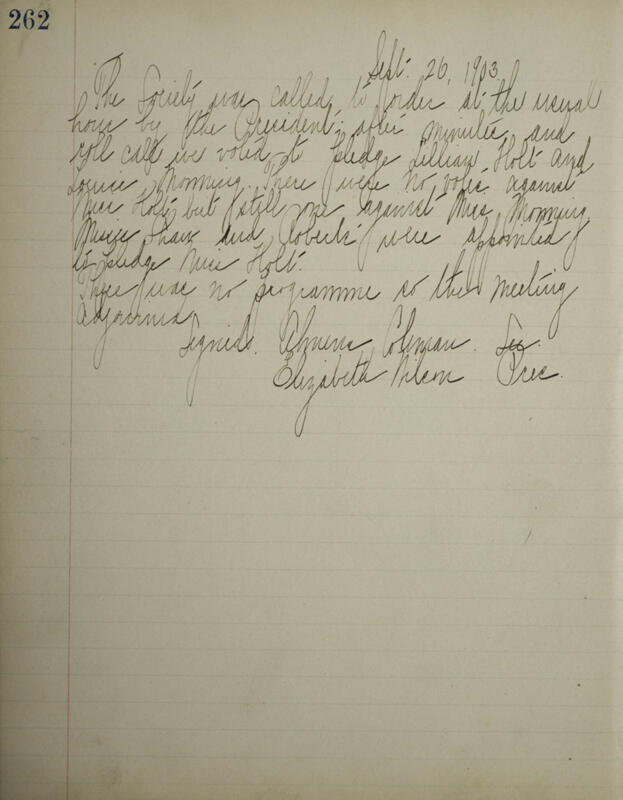 262
Sept. 26, 1903
The Society was called to order at the usual
hour by the President; after minutes and
roll call we voted to pledge Lillian Holt and
Louise Monning. There were no votes against
Miss Holt but still one against Miss Monning.
Misses Shaw and Roberts were appointed
to pledge Miss Holt.
There was no programme so the meeting
adjourned
Signed. Coleman. Sec.
Elizabeth Wilson Pres.